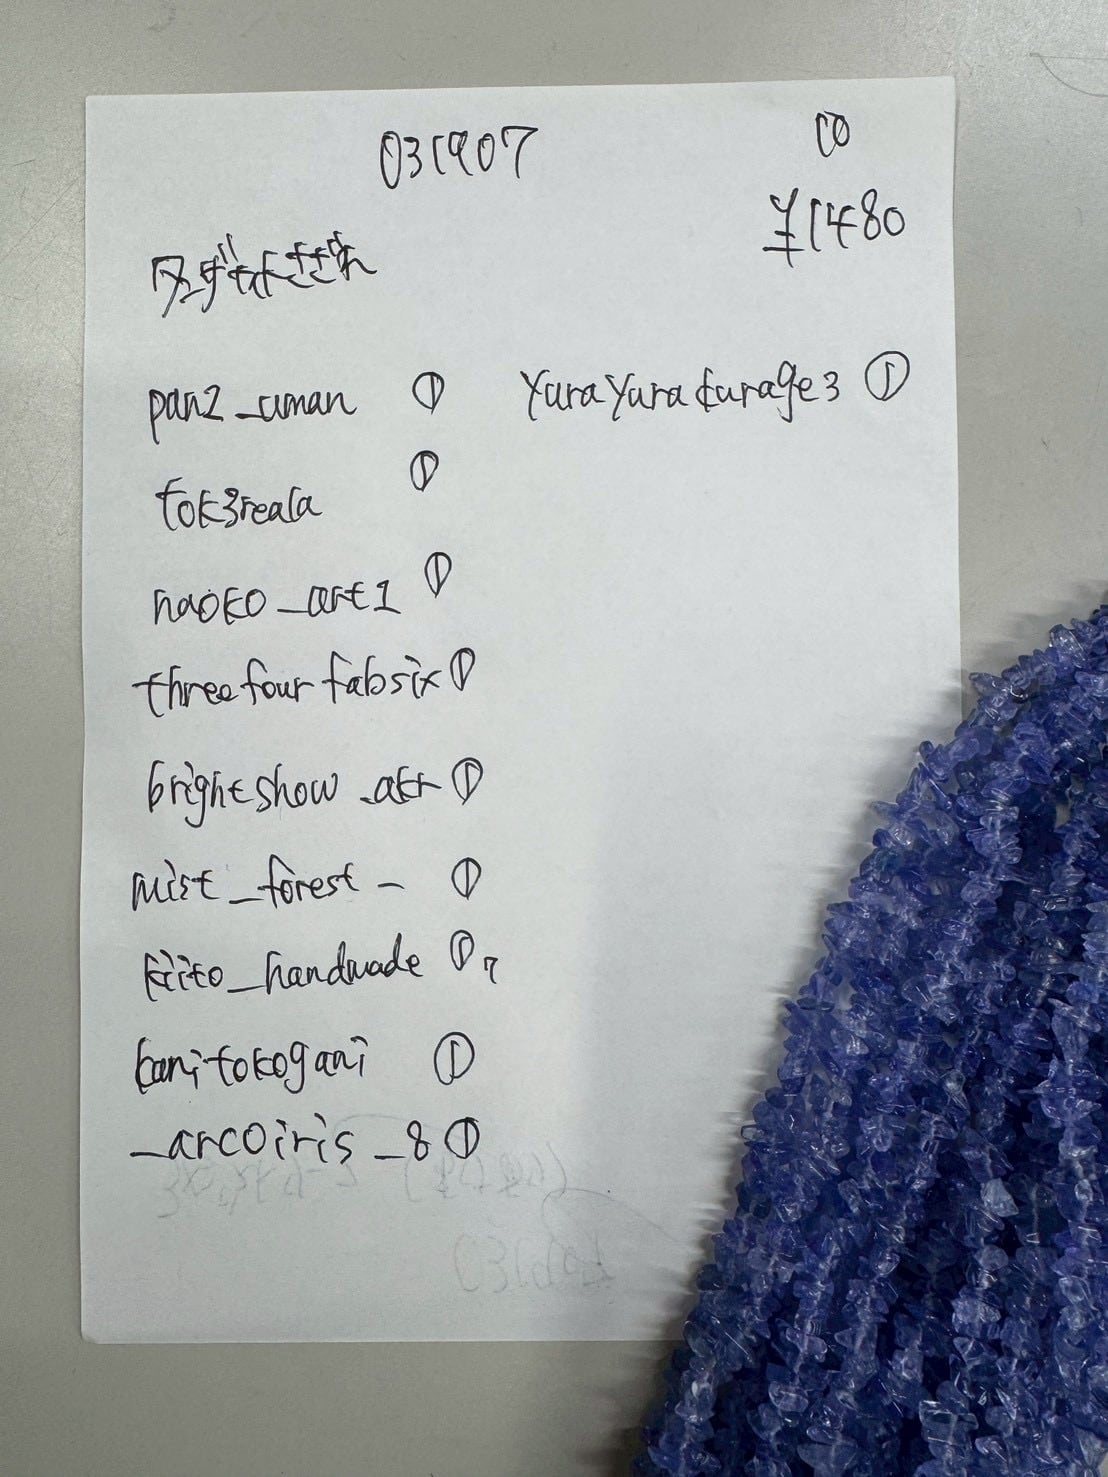 031907
10
¥1480
タンザナイトさざれ
pan2_uman ①
yurayurakurage3 ①
tok3reala ①
naoko_art1 ①
threefourfabsix ①
brightshow_atr ①
mist_forest_ ①
kiito_handmade ①
kanitokogani ①
_arcoiris_8 ①